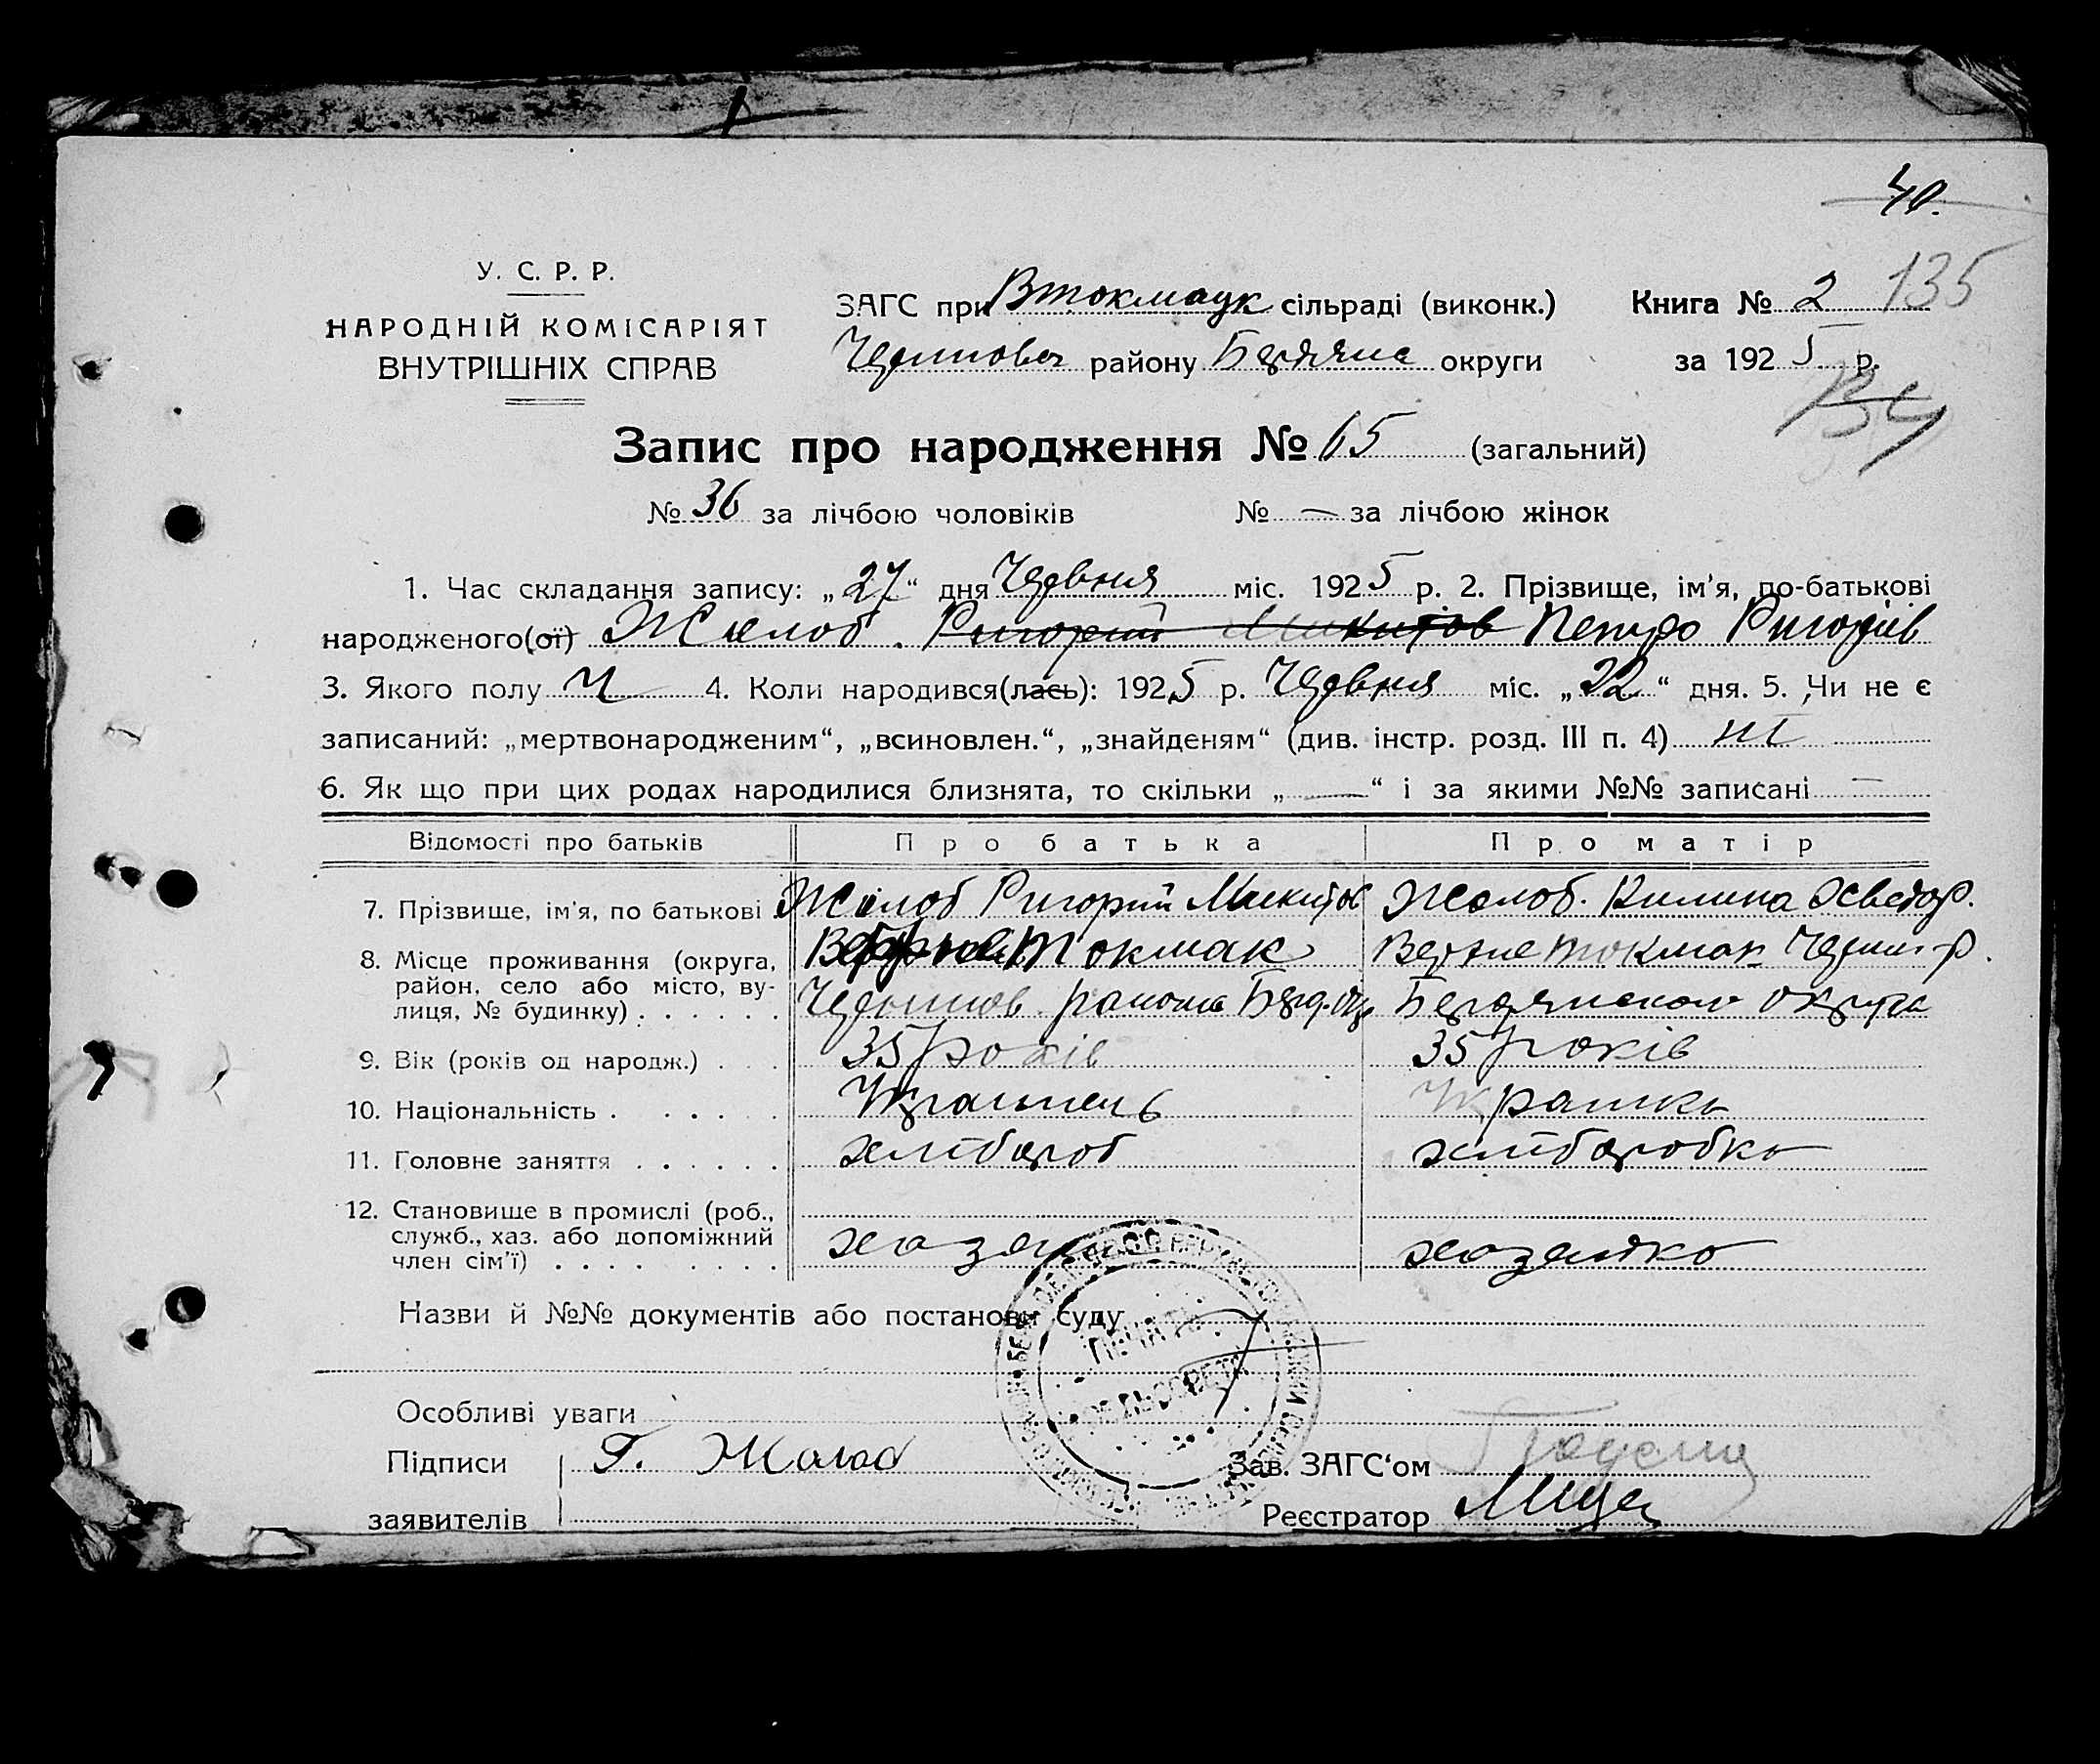 40.
У. С. Р. Р.
НАРОДНІЙ КОМІСАРІЯТ
ВНУТРІШНІХ СПРАВ
ЗАГС при Втокмацк сільраді (виконк.)
району округи
Книга № 2 135
за 1925 р.
134
Запис про народження № 65 (загальний)
№ 36 за лічбою чоловіків № — за лічбою жінок
1. Час складання запису: „27“ дня Червня міс. 1925 р. 2. Прізвище, ім'я, по-батькові
народженого(ої) Жолоб. Ригорий Микитов Петро Ригорів
3. Якого полу Ч 4. Коли народився(лась): 1925 р. Червня міс. „22“ дня. 5. Чи не є
записаний: „мертвонародженим“, „всиновлен.“, „знайденям“ (див. інстр. розд. III п. 4) ні
6. Як що при цих родах народилися близнята, то скільки „—“ і за якими №№ записані —
Відомості про батьків Про батька Про матір
7. Прізвище, ім'я, по батькові Жолоб Ригорий Микитов Жолоб. Килина
8. Місце проживання (округа, район, село або місто, вулиця, № будинку) . . . . . .
Верхне Токмак
Верхне Токмак Черниг р.
району
Бердянской округи
9. Вік (років од народж.) . . . 35 років 35 років
10. Національність . . . . . Українець Українка
11. Головне заняття . . . . . . хлібороб хліборобка
12. Становище в промислі (роб., служб., хаз. або допоміжний член сім'ї) . . . . . . . . .
хазяин хазяйка
Назви й №№ документів або постанови суду
ПЕЧАТЬ
СЕЛЬСОВЕТА
Особливі уваги
Підписи заявителів Г. Жолоб
Зав. ЗАГС'ом
Реєстратор